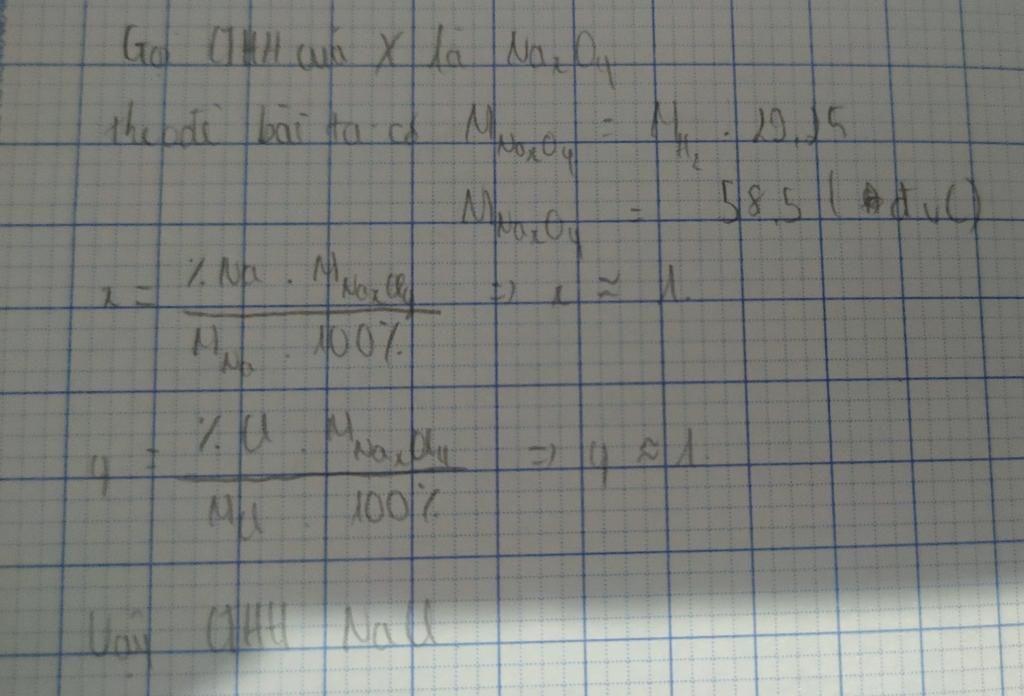 Gọi CTHH của X là NaxCly
theo đề bài ta có M NaxCly = M H2 . 29,25
M NaxCly = 58,5 (đvC)
x = %Na . M NaxCly / M Na . 100% => x ≈ 1.
y = %Cl . M NaxCly / M Cl . 100% => y ≈ 1.
Vậy CTHH NaCl